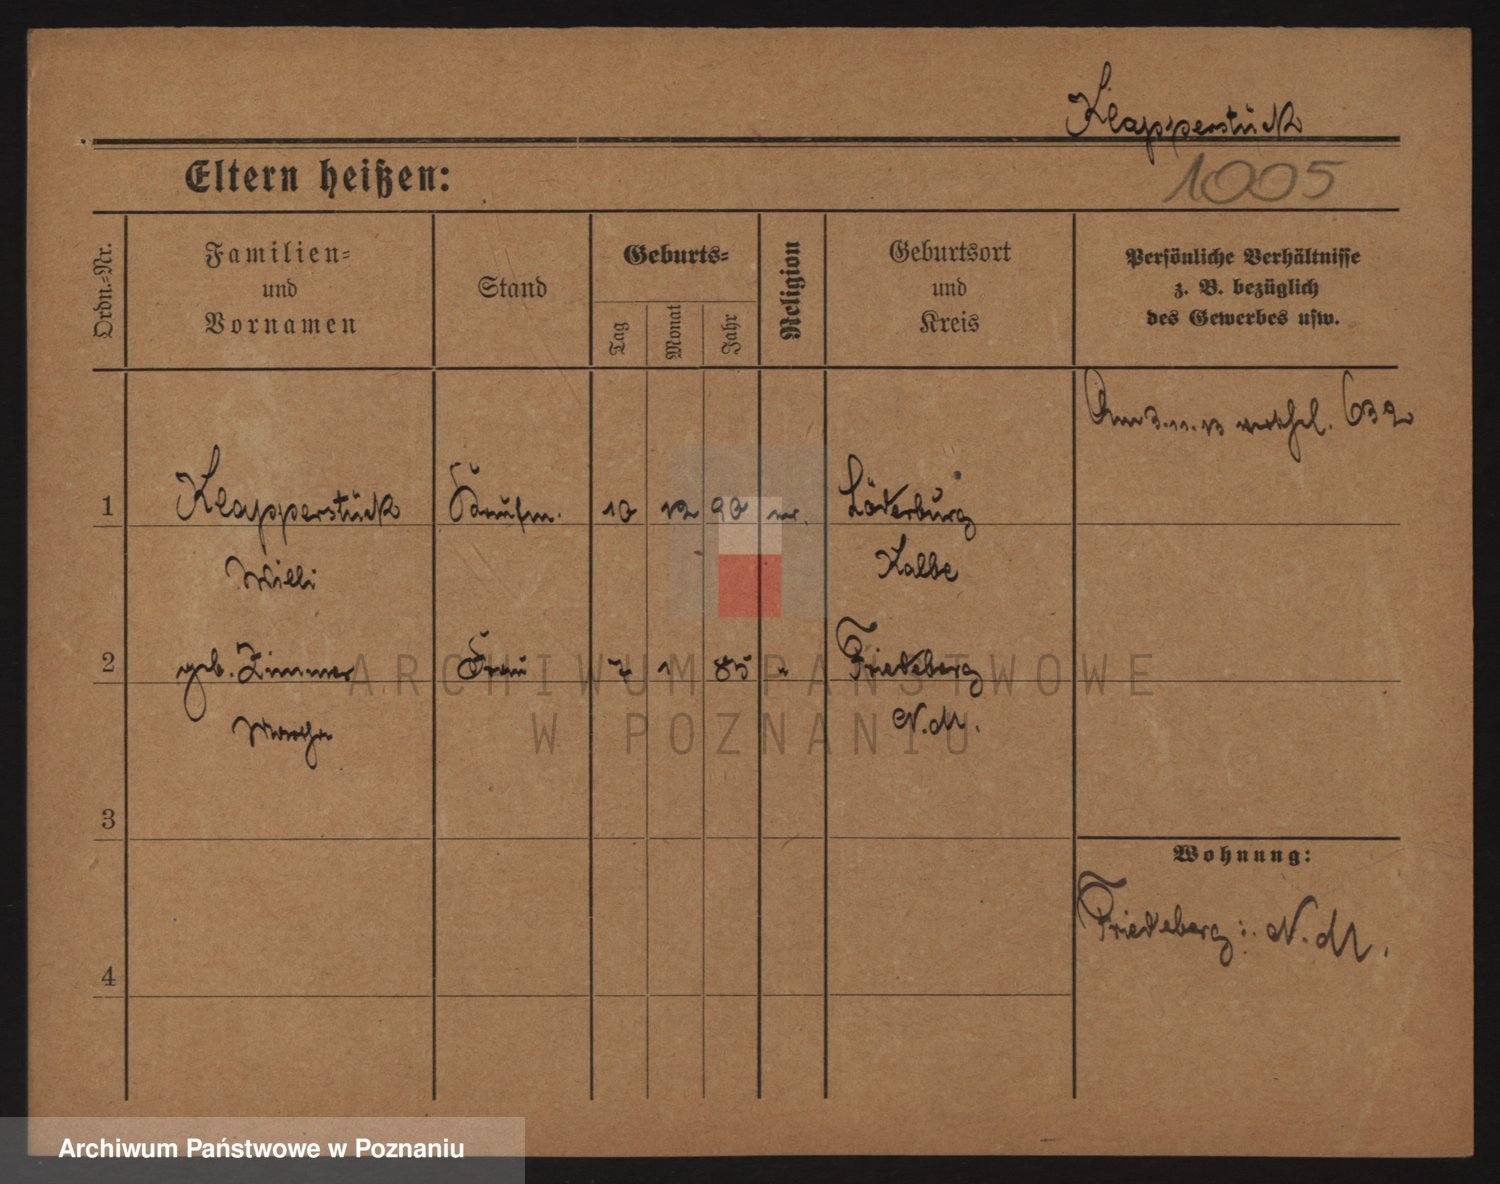 Klapperstück
Eltern heißen:
1005
Ordn.=Nr.
Familien=
und
Vornamen
Stand
Geburts=
Tag
Monat
Jahr
Religion
Geburtsort
und
Kreis
Persönliche Verhältnisse
z. B. bezüglich
des Gewerbes usw.
Am 3.11.13 632
1 Klapperstück Kaufm. 10 12 90 Löderburg
Willi Kalbe
2 geb. Zimmer Frau 7 1 85 " Friedeberg
Martha N.M.
3
Wohnung:
Friedeberg i. N.M.
4
ARCHIWUM PAŃSTWOWE
W POZNANIU
Archiwum Państwowe w Poznaniu